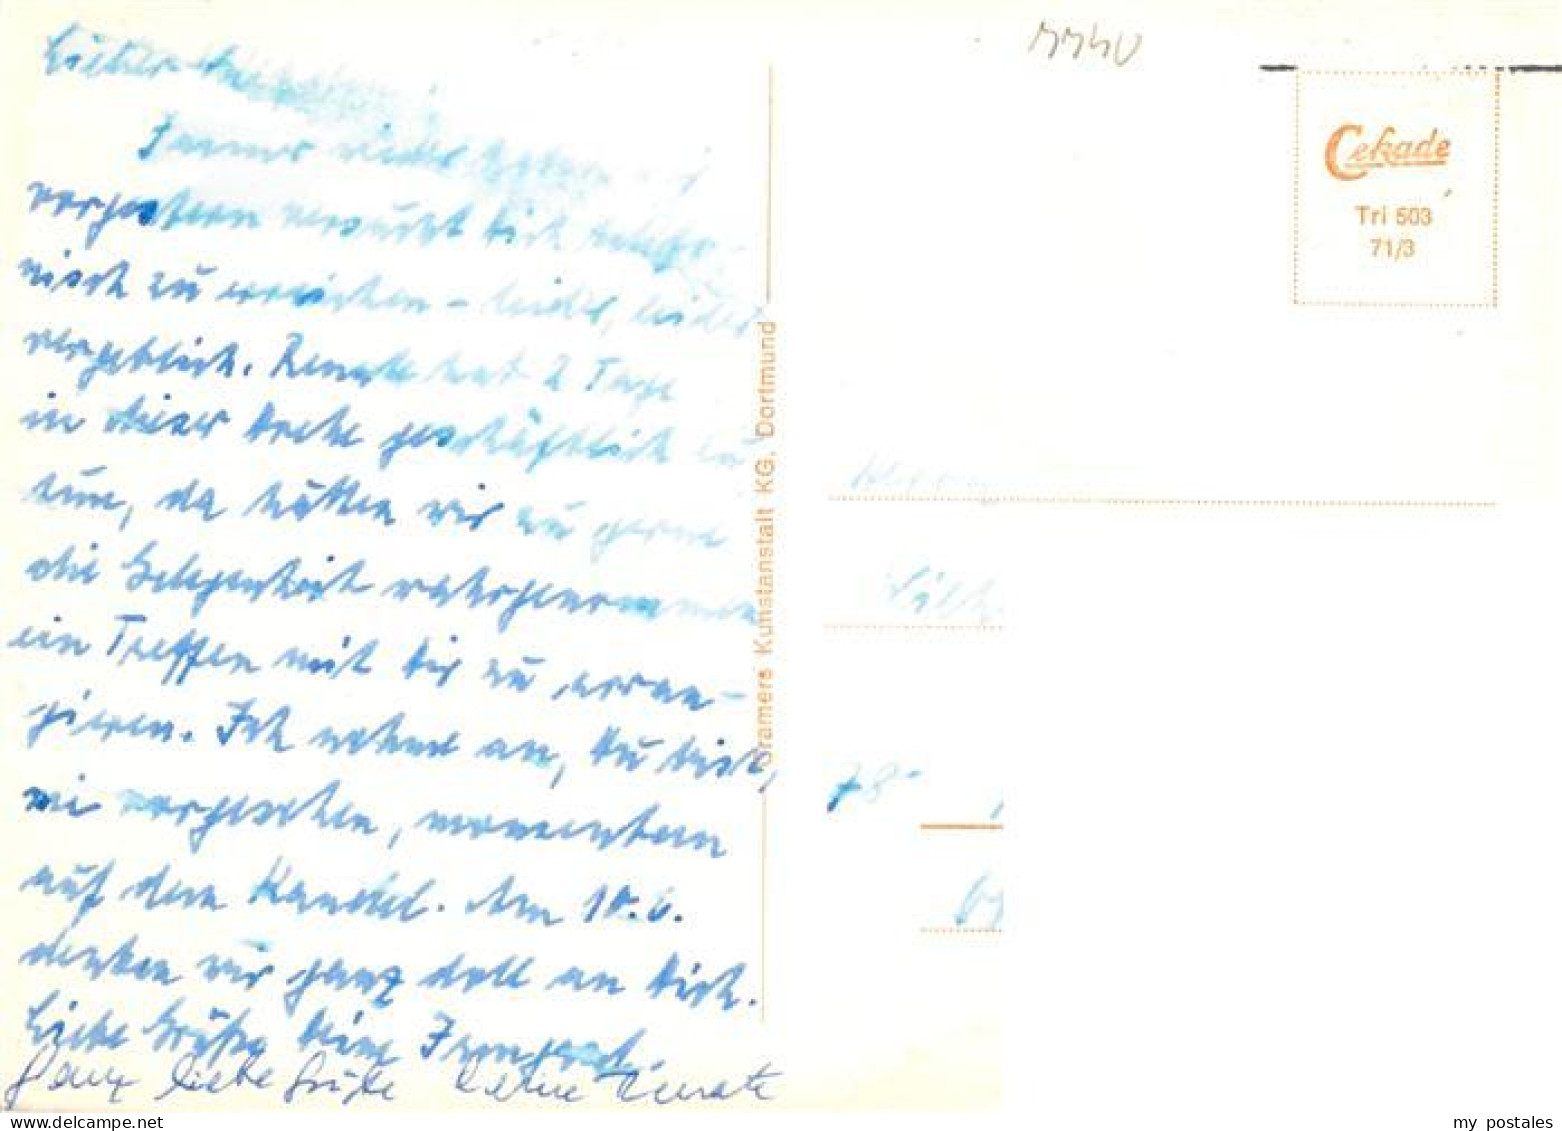 Lieber
Immer wieder gestern u.
vorgestern versucht Dich telefo-
nisch zu erreichen - leider, leider
vergeblich. Renate hat 2 Tage
in dieser Ecke geschäftlich zu
tun, da hätten wir zu gerne
die Gelegenheit wahrgenommen
ein Treffen mit Dir zu arran-
gieren. Ich nehme an, Du bist,
wie vorgesehen, momentan
auf dem Kandel. Am 10.6.
denken wir ganz doll an Dich.
Liebe Grüße Deine Irmgard.
Ganz liebe Grüße Deine Renate
Cramers Kunstanstalt KG, Dortmund
Cekade
Tri 503
71/3
78
my postales